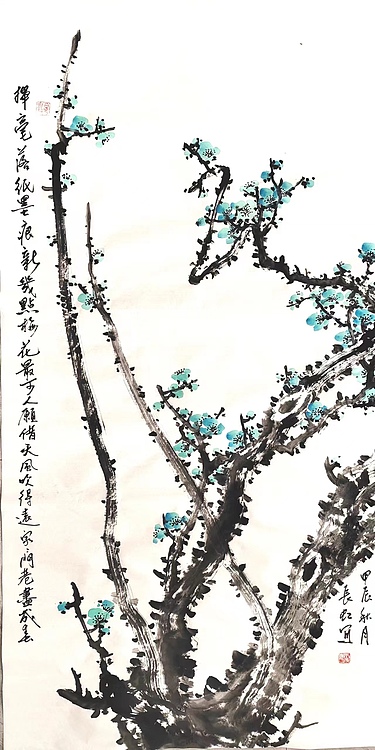 揮毫落紙墨痕新幾點梅花最可人願借天風吹得遠家々門巷盡成春
甲辰秋月
長虹写